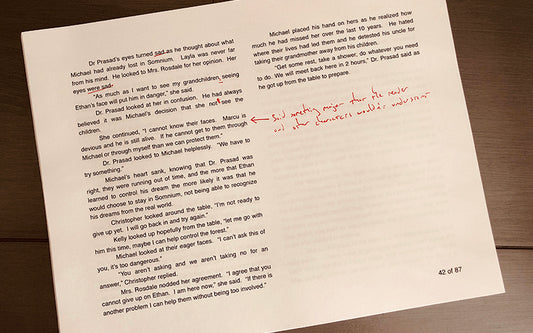 Dr Prasad's eyes turned sad as he thought about what
Michael had already lost in Somnium. Layla was never far
from his mind. He looked to Mrs. Rosdale for her opinion. Her
eyes were sad.
"As much as I want to see my grandchildren, seeing
Ethan's face will put him in danger," she said.
Dr. Prasad looked at her in confusion. He had always
believed it was Michael's decision that she not see the
children.
She continued, "I cannot know their faces. Marcu is
devious and he is still alive. If he cannot get to them through
Michael or through myself than we can protect them."
Dr. Prasad looked to Michael helplessly. "We have to
try something."
Michael's heart sank, knowing that Dr. Prasad was
right, they were running out of time, and the more that Ethan
learned to control his dream the more likely it was that he
would choose to stay in Somnium, not being able to recognize
his dreams from the real world.
Christopher looked around the table, "I'm not ready to
give up yet. I will go back in and try again."
Kelly looked up hopefully from the table, "let me go with
him this time, maybe I can help control the forest."
Michael looked at their eager faces. "I can't ask this of
you, it's too dangerous."
"You aren't asking and we aren't taking no for an
answer," Christopher replied.
Mrs. Rosdale nodded her agreement. "I agree that you
cannot give up on Ethan. I am here now," she said. "If there is
another problem I can help them without being too involved."
Michael placed his hand on hers as he realized how
much he had missed her over the last 10 years. He hated
where their lives had led them and he detested his uncle for
taking their grandmother away from his children.
"Get some rest, take a shower, do whatever you need
to do. We will meet back here in 2 hours," Dr. Prasad said as
he got up from the table to prepare.
said something major that the reader
and other characters wouldn't understand
42 of 87